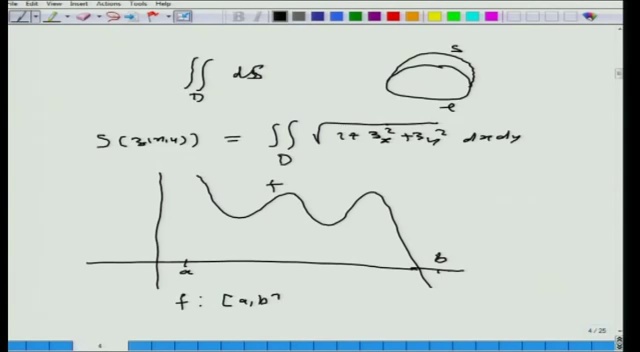 File Edit View Insert Actions Tools Help
∬_D dS
S
S(z(x,y)) = ∬_D √(1+z_x²+z_y²) dxdy
f
a
b
f : [a,b]
4 / 25
4